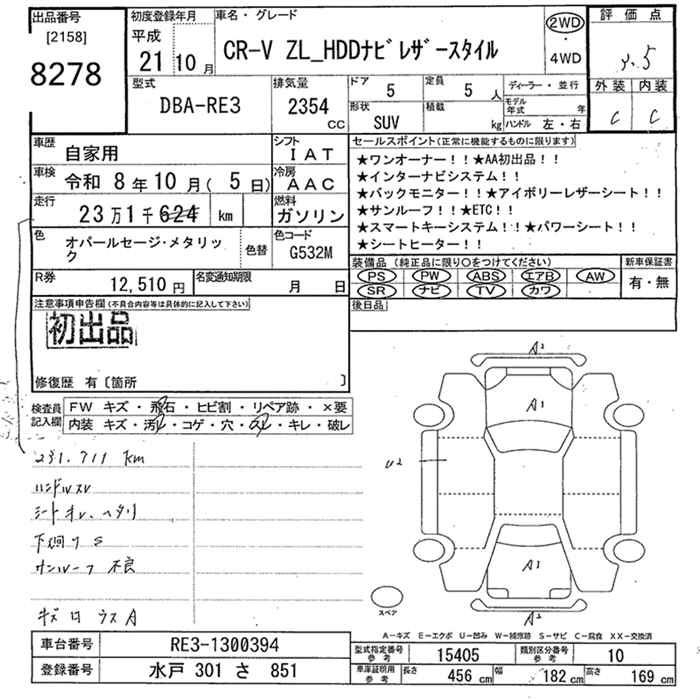 出品番号
[2158]
8278
初度登録年月
平成
21
10月
車名・グレード
CR-V ZL_HDDナビレザースタイル
2WD
・
4WD
評価点
3.5
外装 内装
C C
型式
DBA-RE3
排気量
2354
CC
ドア
5
定員
5
人
形状
SUV
積載
kg
ディーラー・並行
モデル年式
年
ハンドル 左・右
車歴
自家用
シフト
IAT
車検
令和 8年10月(5日)
冷房
AAC
走行
23万1千624 km
燃料
ガソリン
色
オパールセージ・メタリック
色替
色コード
G532M
R券
12,510円
名変通知期限
月 日
セールスポイント(正常に機能するものに限ります)
★ワンオーナー!!★AA初出品!!
★インターナビシステム!!
★バックモニター!!★アイボリーレザーシート!!
★サンルーフ!!★ETC!!
★スマートキーシステム!!★パワーシート!!
★シートヒーター!!
装備品(純正品に限り○をつけてください)
PS PW ABS エアB AW
SR ナビ TV カワ
新車保証書
有・無
後日品
注意事項申告欄(不具合内容等は具体的に記入して下さい)
初出品
修復歴 有〔箇所 〕
検査員記入欄
FW キズ・飛石・ヒビ割・リペア跡・×要
内装 キズ・汚れ・コゲ・穴・スレ・キレ・破レ
231.711 km
ハンドルスレ
シートスレ、ヘタリ
下廻り S
サンルーフ 不良
キズ凹 ウスA
A2
A1
U2
A1
A2
スペア
A-キズ E-エクボ U-凹み W-補修跡 S-サビ C-腐食 XX-交換済
車台番号
RE3-1300394
登録番号
水戸 301 さ 851
型式指定番号
参考
15405
類別区分番号
参考
10
車庫証明用
参考
長さ
456 cm
幅
182 cm
高さ
169 cm